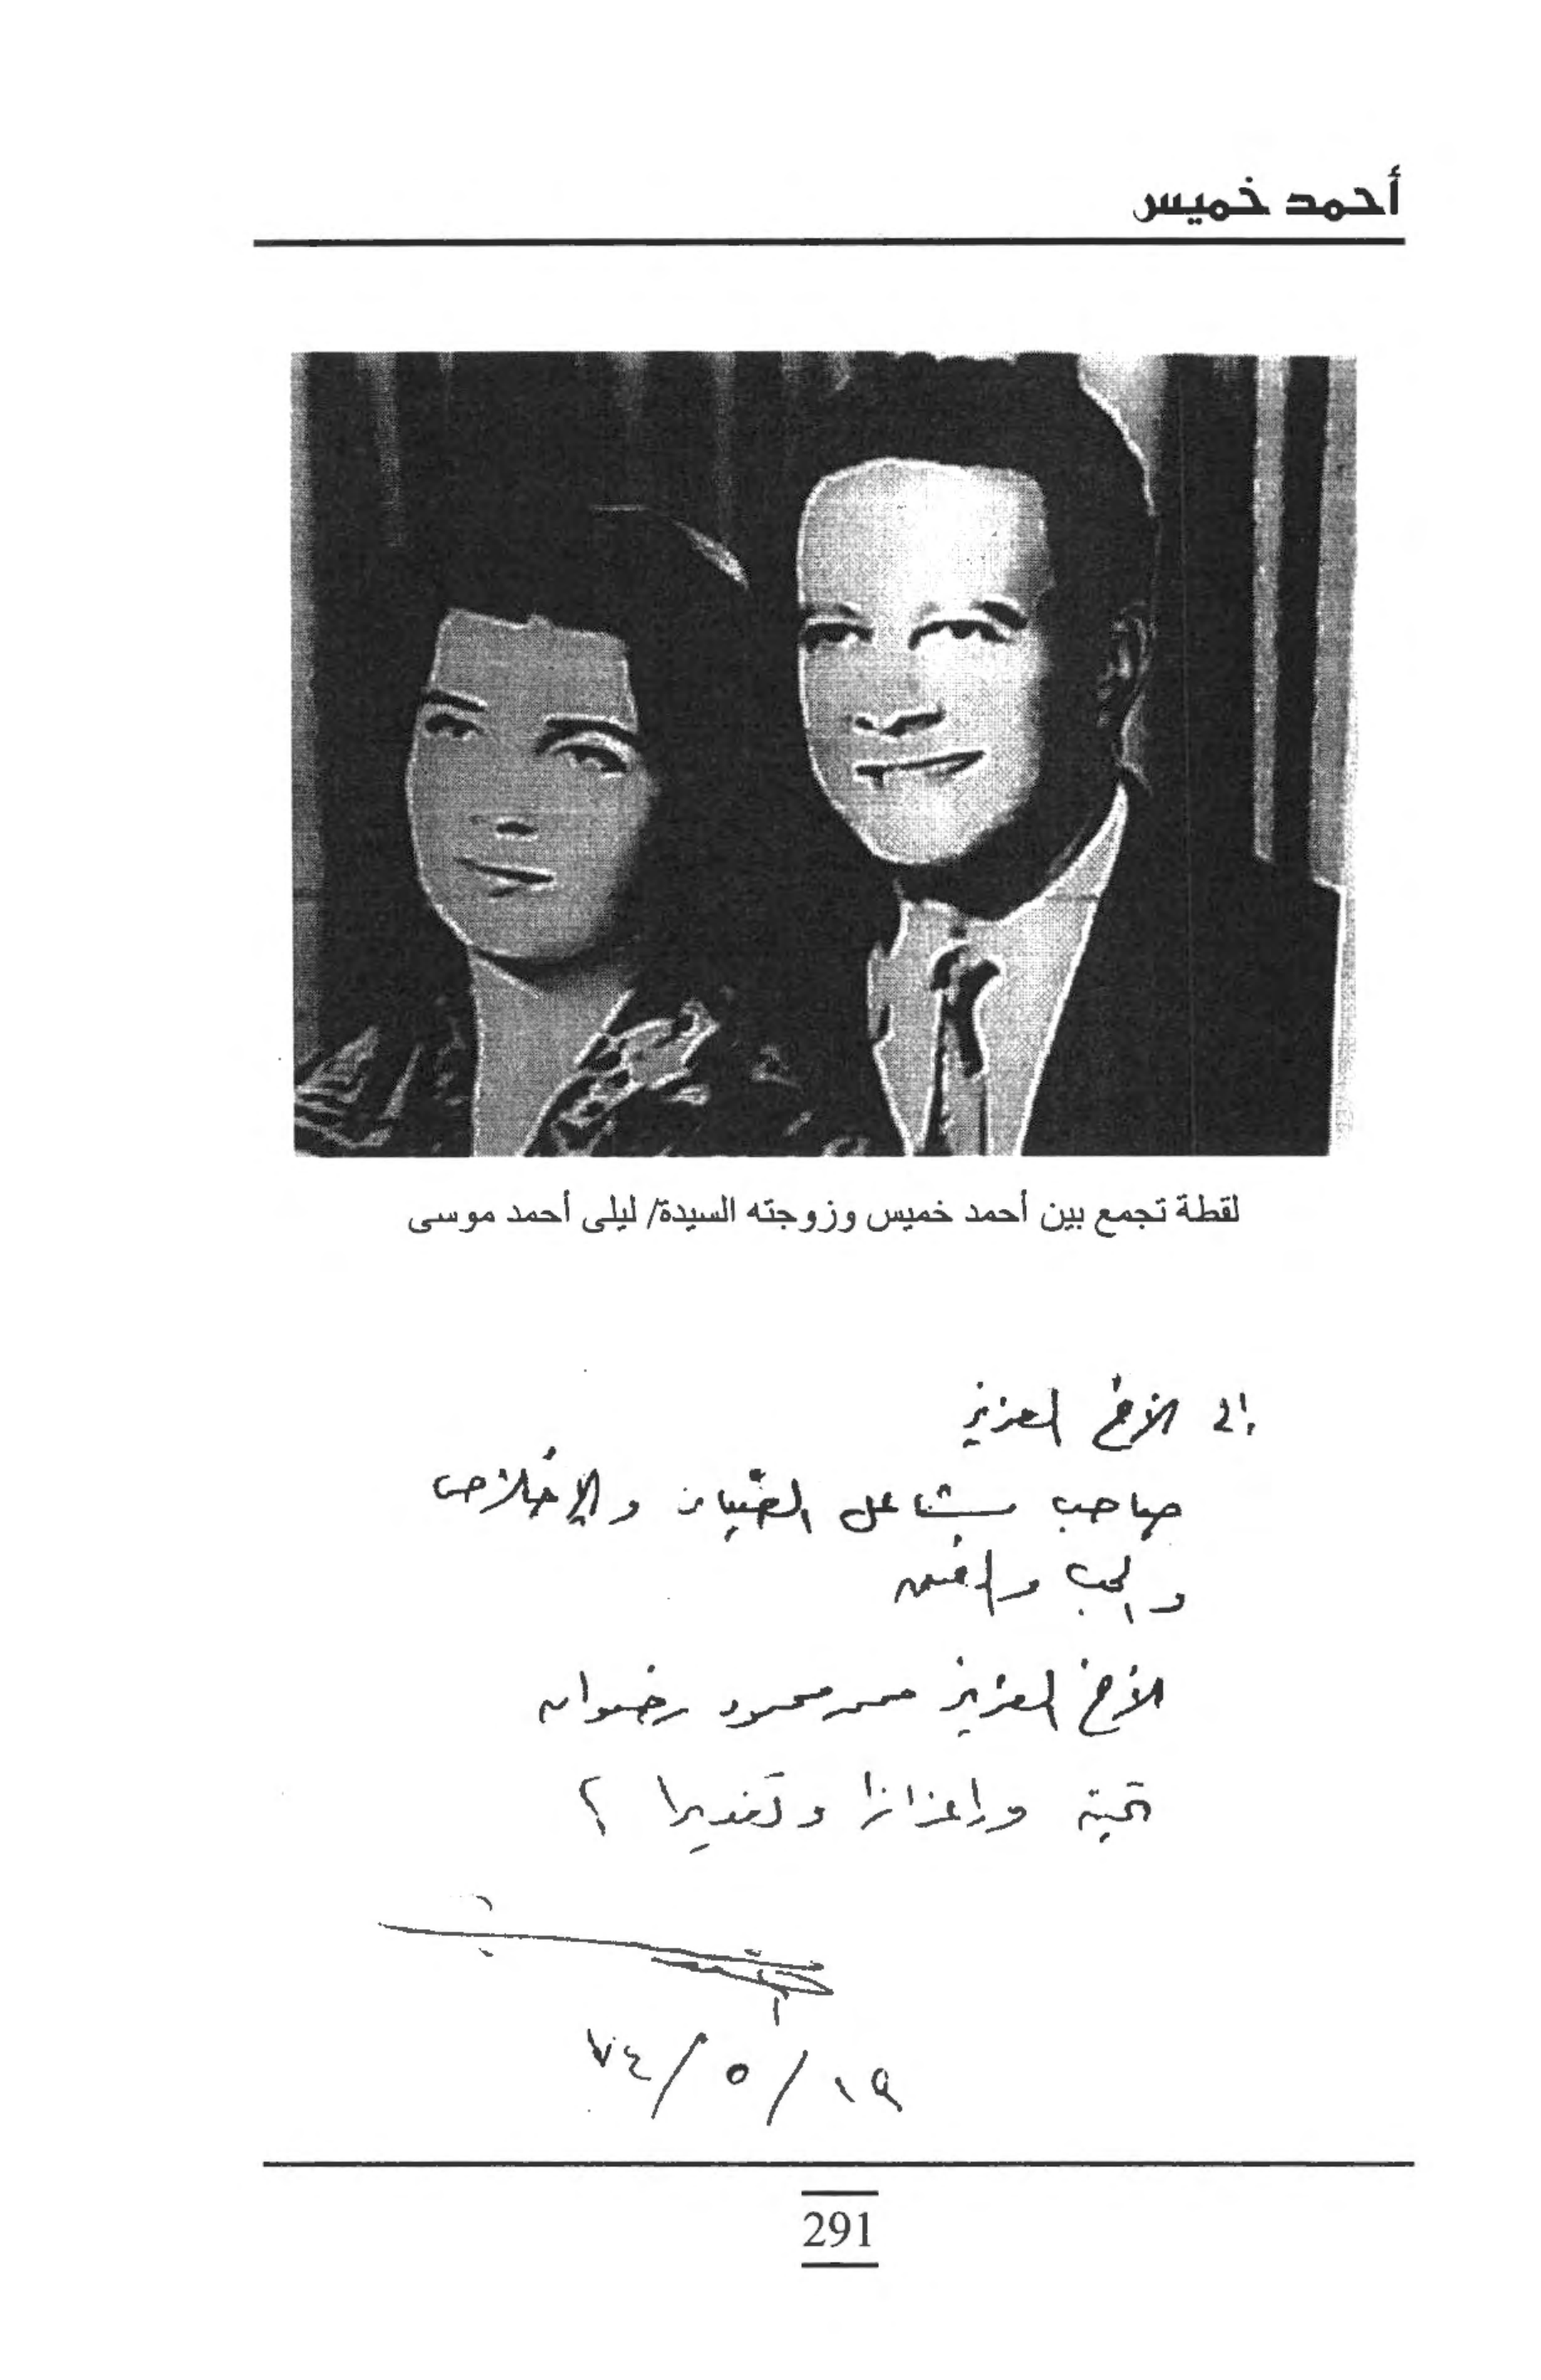 أحمد خميس
لقطة تجمع بين أحمد خميس وزوجته السيدة/ ليلى أحمد موسى
إلى الأخ العزيز
صاحب مشاعل الضياء والإخلاص
والحب والفن
الأخ العزيز محمد محمود رضوان
تحية وإعزازا وتقديرا
١٩/٥/٧٤
291